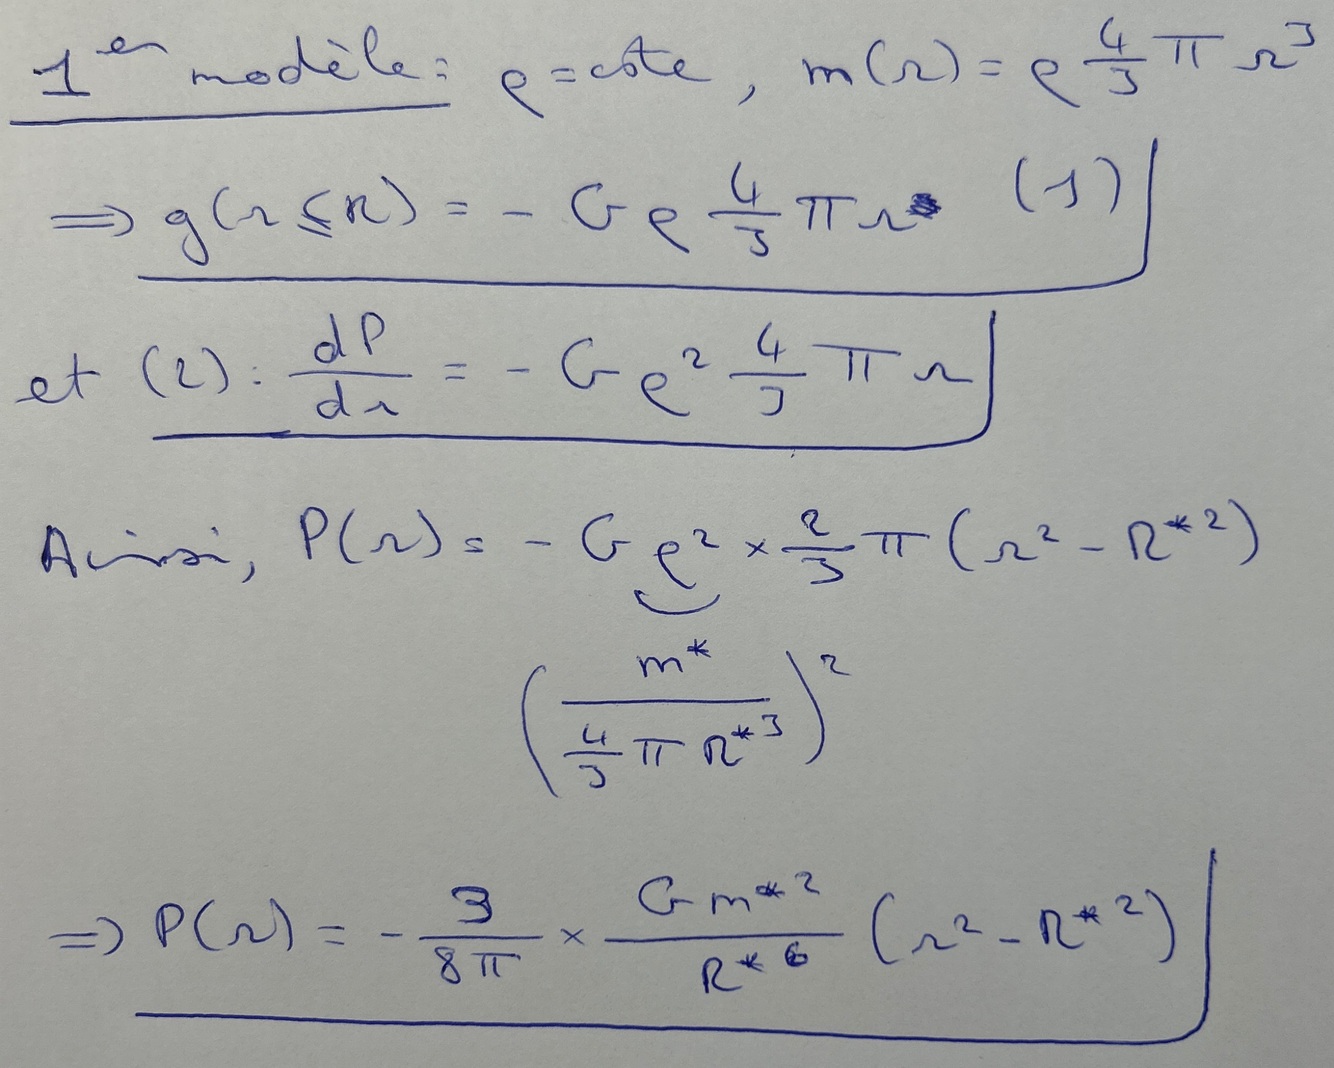 1er modèle : ρ = cste , m(r) = ρ 4/3 π r³
⇒ g(r ≤ R) = - G ρ 4/3 π r (1)
et (2) : dP/dr = - G ρ² 4/3 π r
Ainsi, P(r) = - G ρ² × 2/3 π (r² - R*²)
(m* / (4/3 π R*³))²
⇒ P(r) = - 3/8π × G m*²/R*⁶ (r² - R*²)